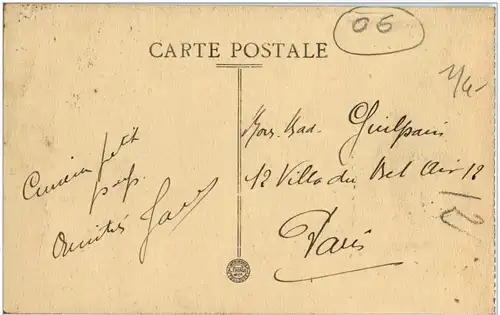 06
CARTE POSTALE
petit
Amitiés
Mons. Mad. Guilpain
12 Villa du Bel Air 12
Paris
12